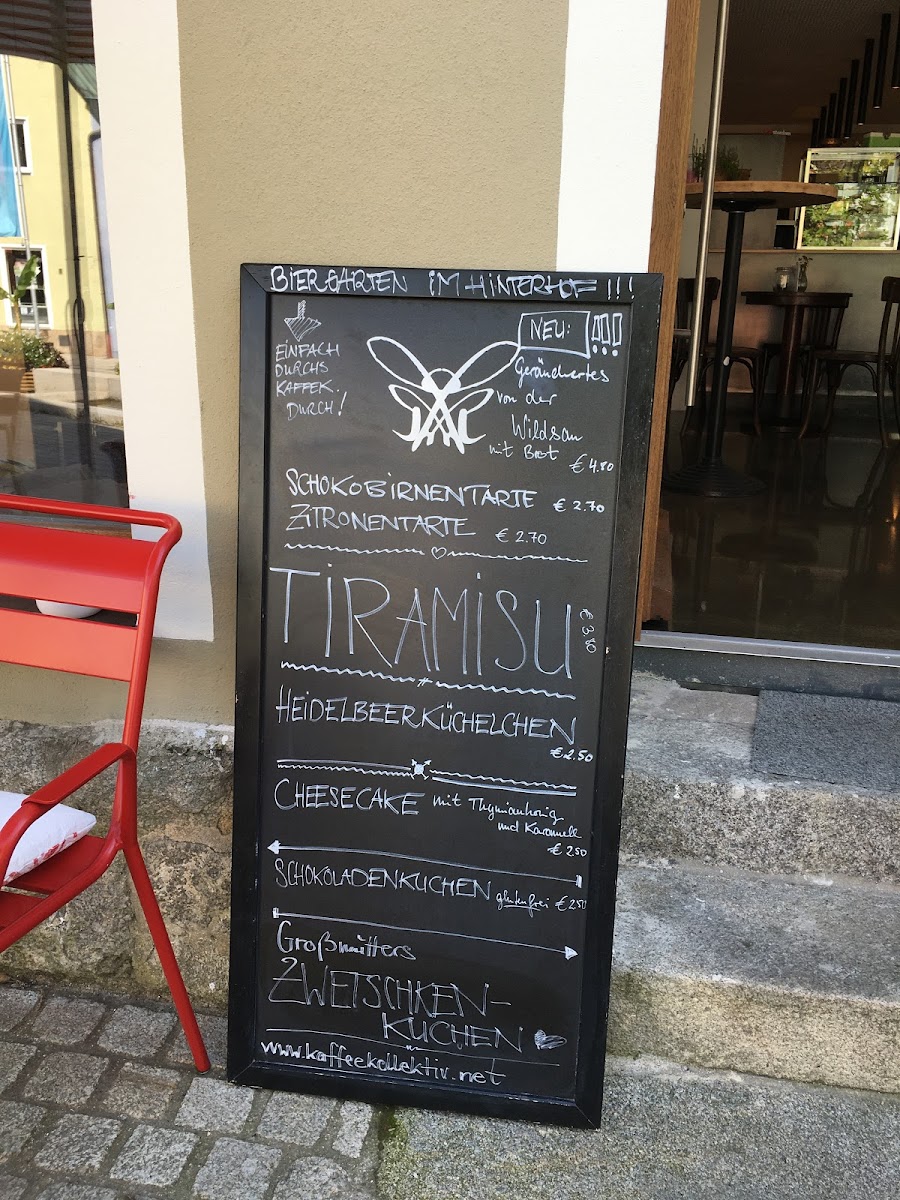 BIERGARTEN IM HINTERHOF !!!
EINFACH
DURCHS
KAFFEK.
DURCH!
NEU: !!!
Geräuchertes
von der
Wildsau
mit Brot
€ 4.80
SCHOKOBIRNENTARTE € 2.70
ZITRONENTARTE € 2.70
TIRAMISU € 3.80
HEIDELBEERKÜCHELCHEN
€ 2.50
CHEESECAKE mit Thymianhonig
und Karamell
€ 2.50
SCHOKOLADENKUCHEN glutenfrei € 2.50
Großmutters
ZWETSCHKEN-
KUCHEN
www.kaffeekollektiv.net